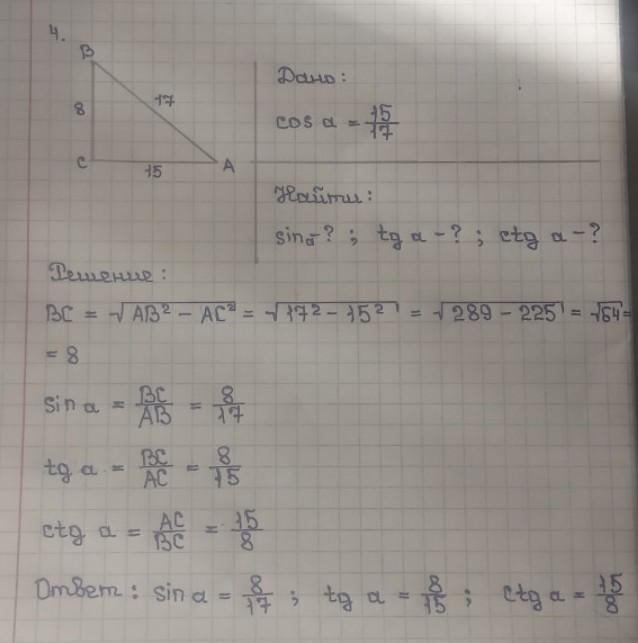 4.
B
8
17
C
15
A
Дано:
cos a = 15/17
Найти:
sin a - ? ; tg a - ? ; ctg a - ?
Решение:
BC = √AB² - AC² = √17² - 15² = √289 - 225 = √64 =
= 8
sin a = BC/AB = 8/17
tg a = BC/AC = 8/15
ctg a = AC/BC = 15/8
Ответ: sin a = 8/17 ; tg a = 8/15 ; ctg a = 15/8